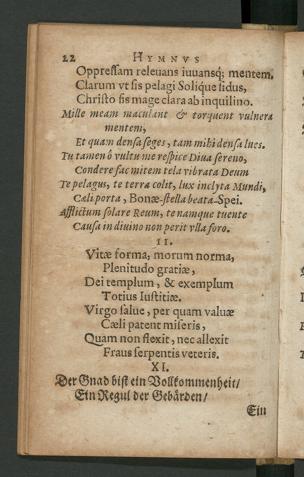 22 HYMNVS
Oppreſſam releuans iuuansq; mentem.
Clarum vt ſis pelagi Solique ſidus,
Chriſto ſis mage clara ab inquilino.
Mille meam maculant & torquent vulnera
mentem,
Et quam denſa ſeges, tam mihi denſa lues.
Tu tamen ô vultu me reſpice Diua ſereno,
Condere fac mitem tela vibrata Deum
Te pelagus, te terra colit, lux inclyta Mundi,
Cæli porta, Bonæ-ſtella beata-Spei.
Afflictum ſolare Reum, te namque tuente
Cauſa in diuino non perit vlla foro.
II.
Vitæ forma, morum norma,
Plenitudo gratiæ,
Dei templum, & exemplum
Totius Iuſtitiæ.
Virgo ſalue, per quam valuæ
Cæli patent miſeris,
Quam non flexit, nec allexit
Fraus ſerpentis veteris.
XI.
Der Gnad biſt ein Vollkommenheit/
Ein Regul der Gebärden/
Ein